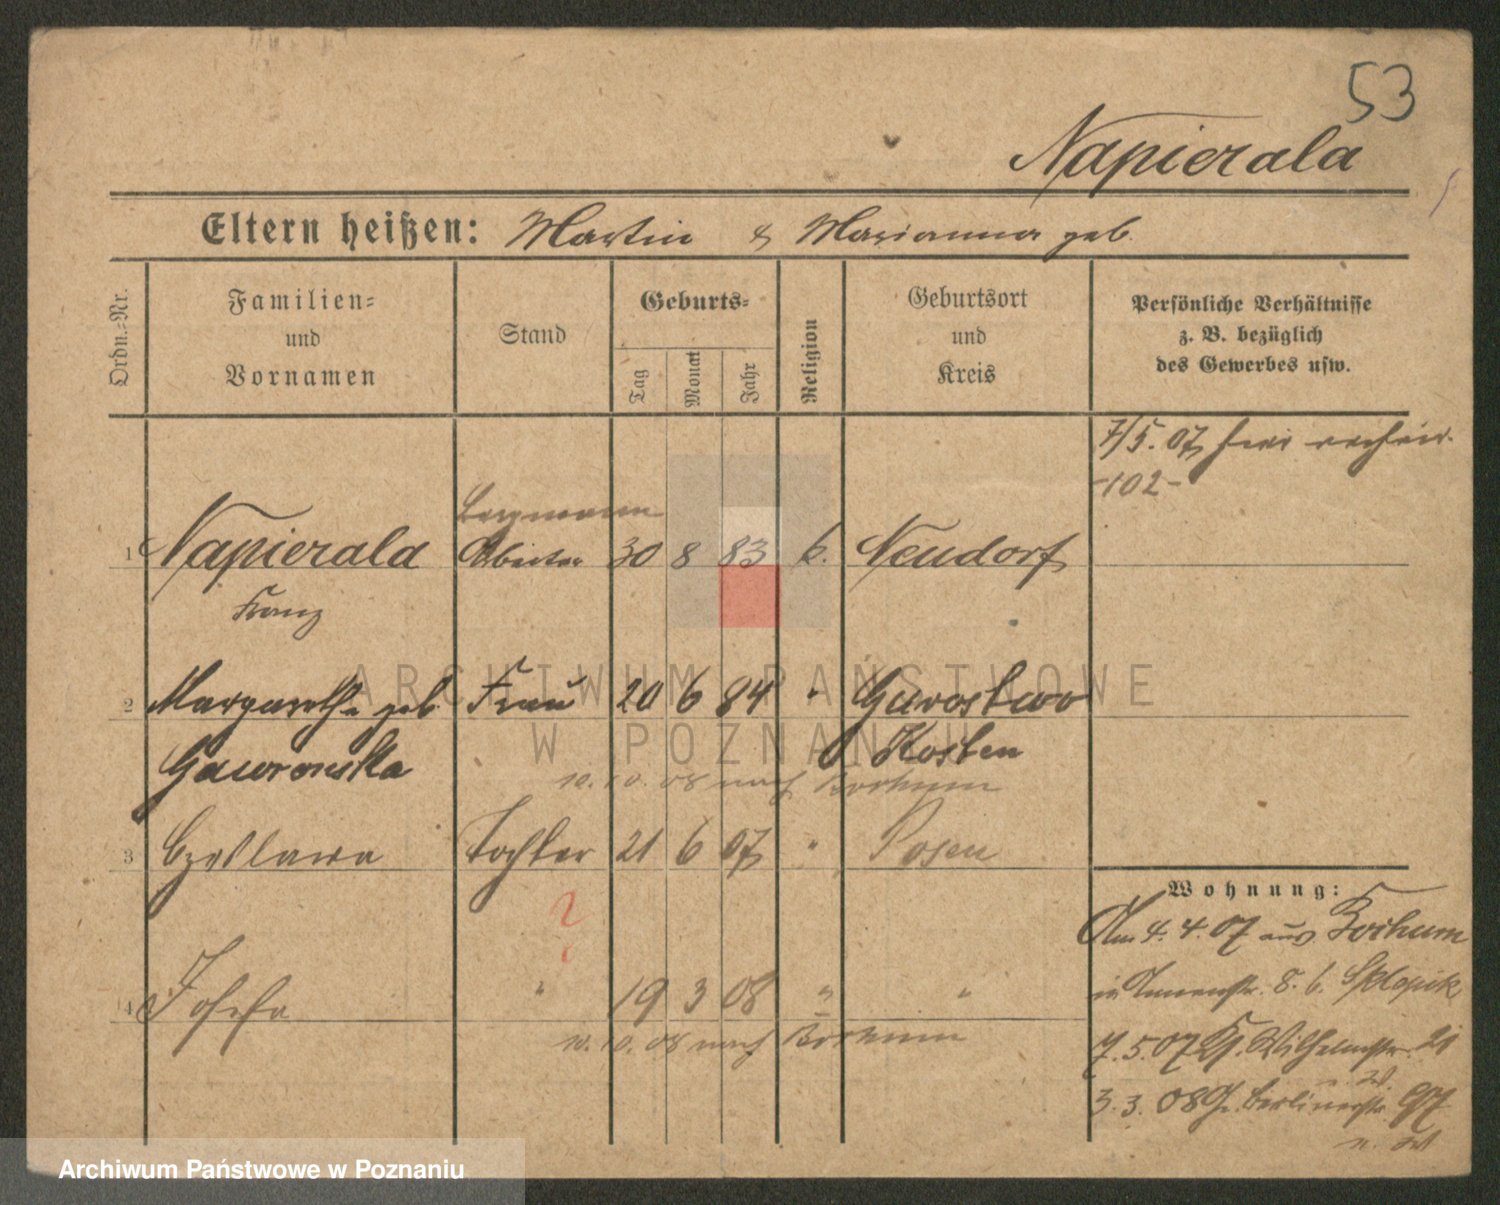 53
Napierala
Eltern heißen: Martin & Marianna geb.
Ordn.-Nr.
Familien-
und
Vornamen
Stand
Geburts-
Tag
Monat
Jahr
Religion
Geburtsort
und
Kreis
Persönliche Verhältnisse
z. B. bezüglich
des Gewerbes usw.
7/5. 07
-102-
Bergmann
1 Napierala Arbeiter 30 8 83 k. Neudorf
Franz
2 Margarethe geb. Frau 20 6 84 " Gurostwo
Gawronska Kosten
10. 10. 08 nach Bochum
3 Czeslawa Tochter 21 6 07 " Posen
?
4 Josefa " 19 3 08 " "
10. 10. 08 nach Bochum
Wohnung:
Am 4. 4. 07 aus Bochum
8. b. Sklapik
7. 5. 07 Kl. Wilhelmstr. 21
3. 3. 08 Gr. Berlinerstr. 97
ARCHIWUM PAŃSTWOWE
W POZNANIU
Archiwum Państwowe w Poznaniu